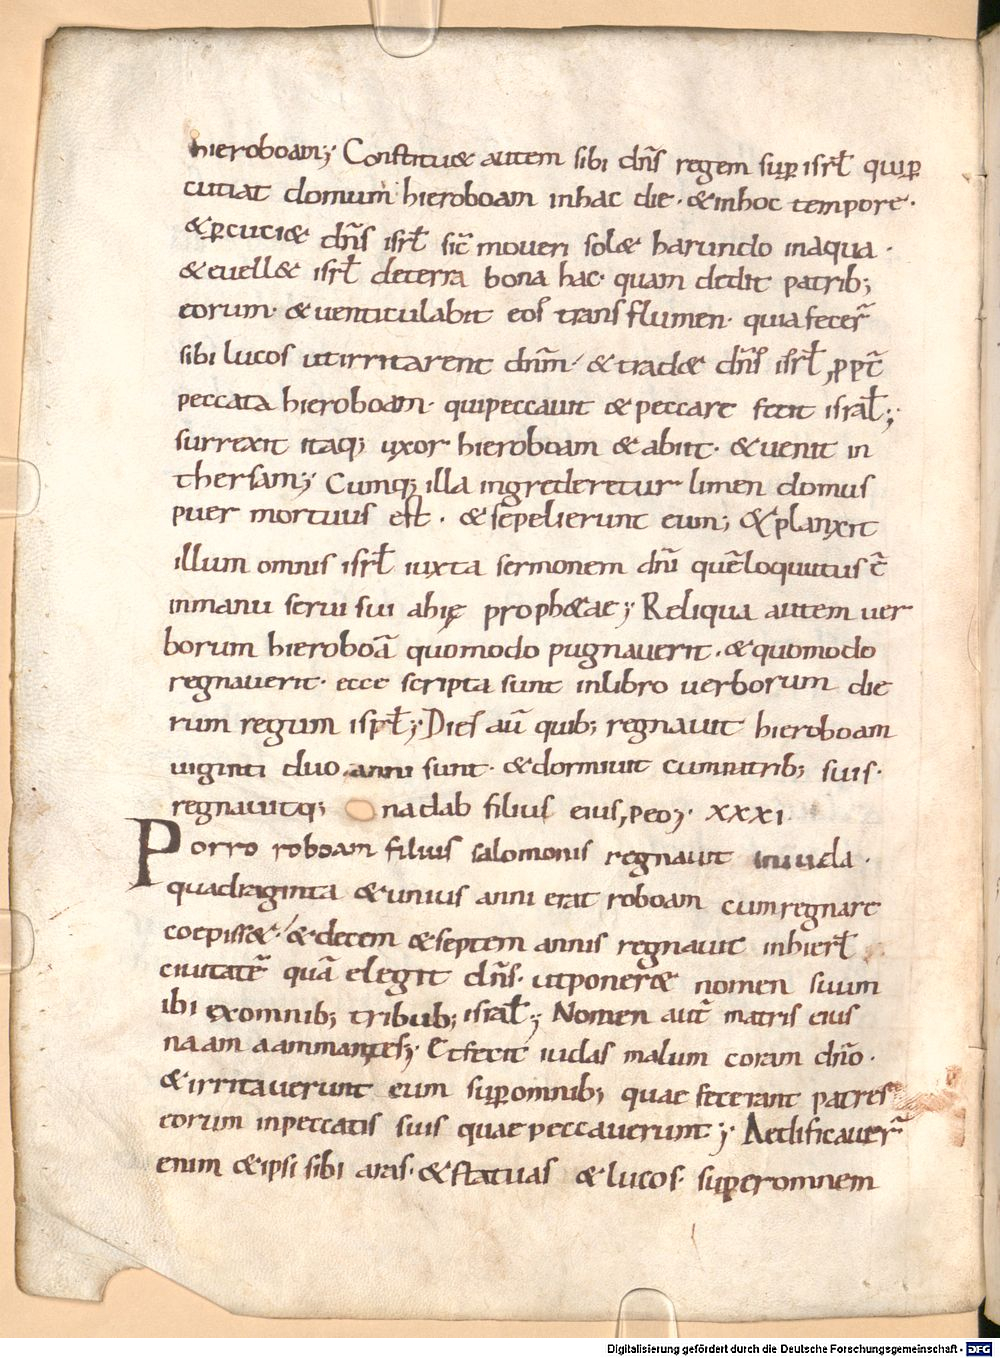 hieroboam; Constituet autem sibi dñs regem suꝑ isrl̃ qui ꝑ
cutiat domum hieroboam in hac die · & in hoc tempore ·
& ꝑcuciet dñs isrl̃ sic̃ moueri solet harundo in aqua ·
& euellet isrl̃ de terra bona hac · quam dedit patrib;
eorum · & uentilculabit eos trans flumen · quia fecer̃
sibi lucos ut irritarent dñm · & tradet dñs isrl̃ ꝓpt̃
peccata hieroboam · qui peccauit & peccare fecit isral̃;
surrexit itaq; uxor hieroboam & abiit · & uenit in
thersam; Cumq; illa ingrederetur limen domus
puer mortuus est · & sepelierunt eum; & planxit
illum omnis isrl̃ iuxta sermonem dñi quẽ loquutus ẽ
in manu serui sui ahię prophetae; Reliqua autem uer
borum hieroboã quomodo pugnauerit · & quomodo
regnauerit · ecce scripta sunt in libro uerborum die
rum regum isrl̃; Dies aũ quib; regnauit hieroboam
uiginti duo anni sunt · & dormiuit cum patrib; suis ·
regnauitq; nadab filius eius ꝓ eo; XXXI
Porro roboam filius salomonis regnauit in iuda ·
quadraginta & unius anni erat roboam cum regnare
coepisset · & decem & septem annis regnauit in hierl̃
ciuitatẽ quã elegit dñs · ut poneret nomen suum
ibi ex omnib; tribub; isral̃; Nomen aut̃ matris eius
naam aammantes; Et fecit iudas malum coram dño ·
& irritauerunt eum suꝑ omnib; quae fecerant patres
eorum in peccatis suis quae peccauerunt; Aedificauer̃
enim & ipsi sibi aras · & statuas & lucos · super omnem
Digitalisierung gefördert durch die Deutsche Forschungsgemeinschaft - DFG